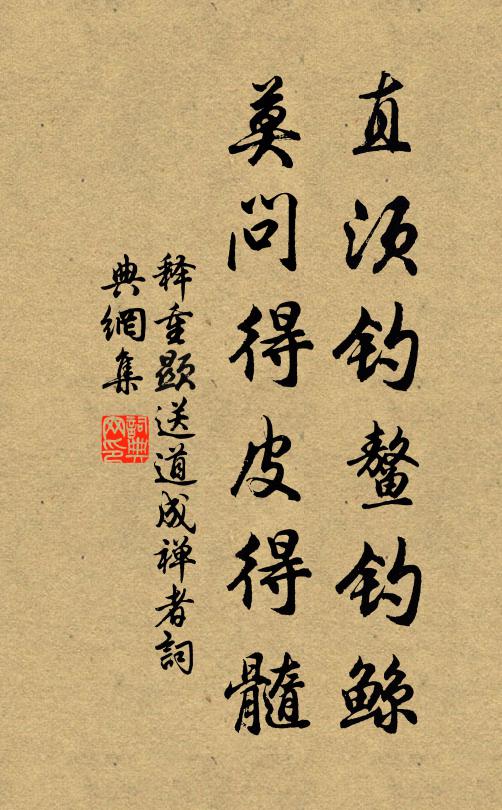 直须钓鳌钓鲸
莫问得皮得髓
释重顯送道成禅者詞
典網集
詞典
网印